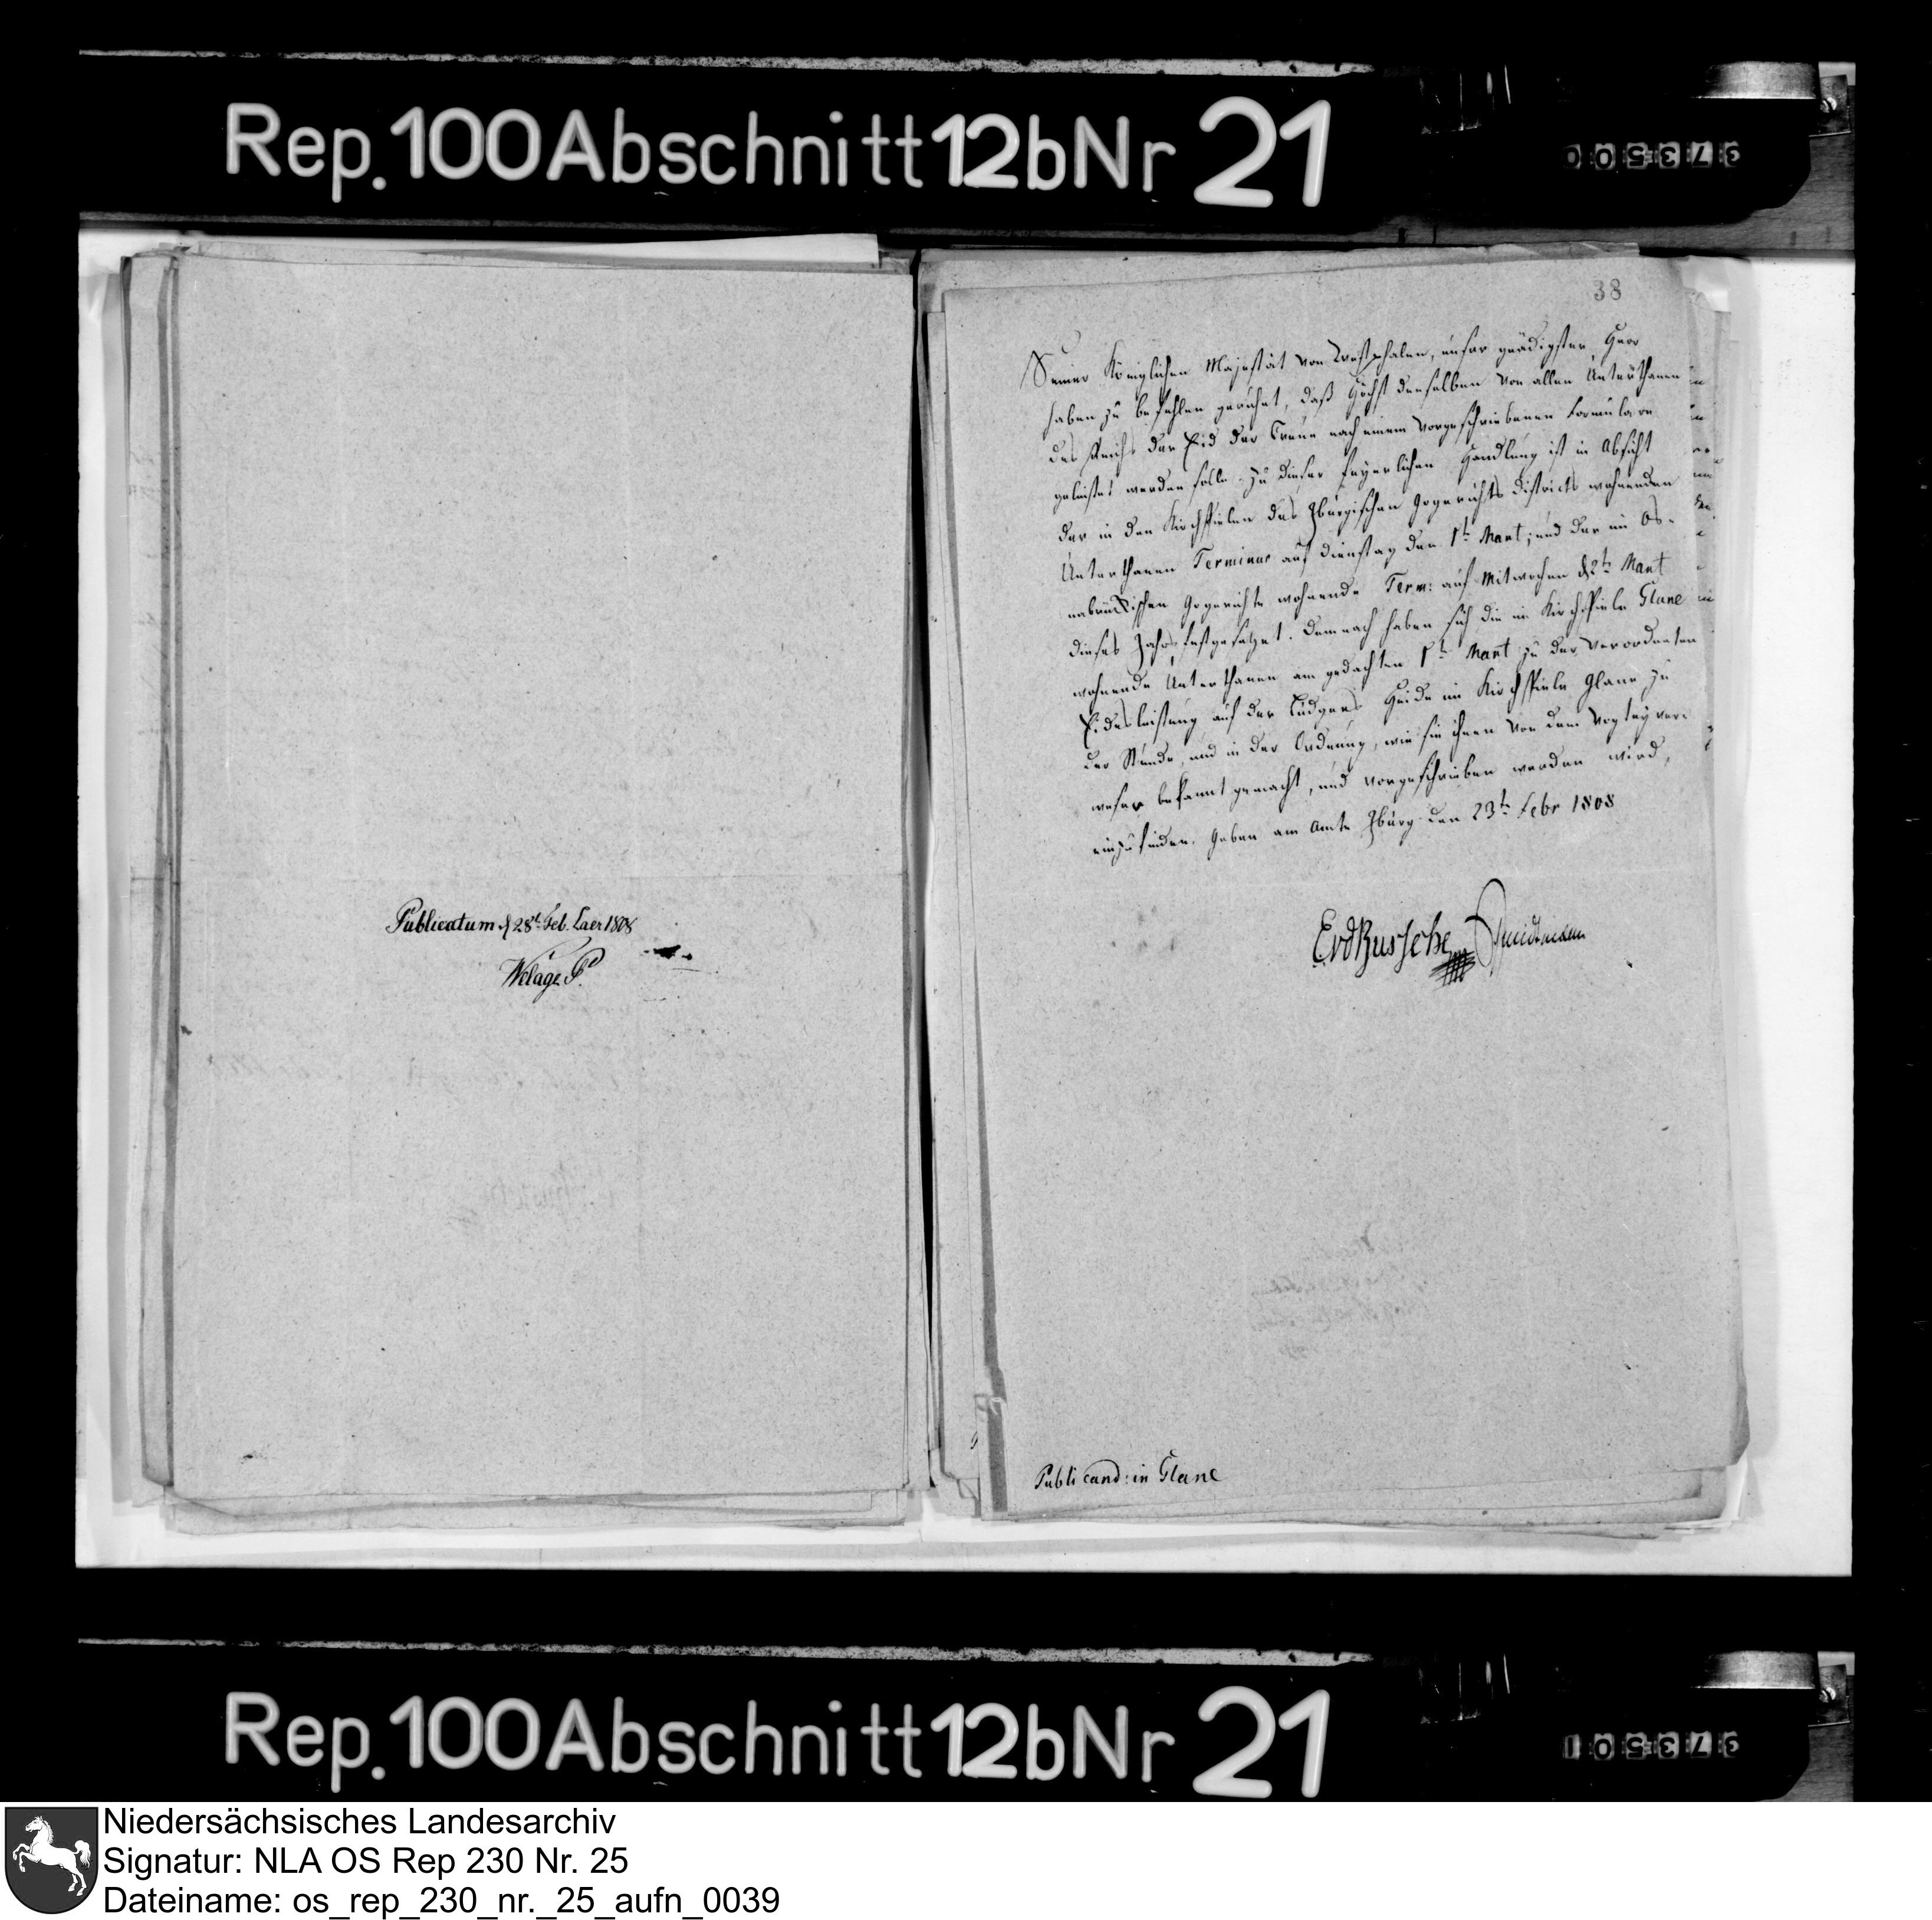 Rep. 100 Abschnitt 12b Nr 21
Publicatum d 28t. Feb. Laer 1808
Welage P.
38
Seiner Königlichen Majestät von Westphalen, unser gnädigster Herr
haben zu befehlen geruhet, daß Höchst denselben von allen Unterthanen
des Reichs der Eid der Treue nach einem vorgeschriebenen Formulare
geleistet werden solle. Zu dieser feyerlichen Handlung ist in Absicht
der in den Kirchspielen des Iburgischen Gogerichts Districts wohnenden
Unterthanen Terminus auf Dienstag den 1t. Mart; und der im Os-
nabrückschen Gogerichte wohnende Term: auf Mitwochen d 2t. Mart
dieses Jahrs festgesetzet. Demnach haben sich die im Kirchspiele Glane
wohnende Unterthanen am gedachten 1t. Mart zu der verordneten
Eidesleistung auf der Lüdgers Heide im Kirchspiele Glane zu
der Stunde, und in der Ordnung, wie sie ihnen von dem Vogtey ver-
weser bekannt gemacht, und vorgeschrieben werden wird,
einzufinden. Geben am Amte Iburg den 23t. Febr 1808
EvdBussche
Publicand: in Glane
Rep. 100 Abschnitt 12b Nr 21
Niedersächsisches Landesarchiv
Signatur: NLA OS Rep 230 Nr. 25
Dateiname: os_rep_230_nr._25_aufn_0039